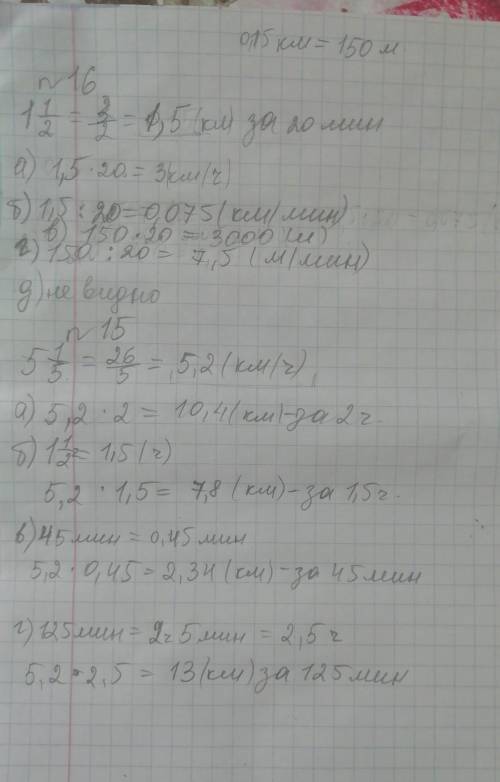 0,15 км = 150 м
№ 16
1 1/2 = 3/2 = 1,5 (км) за 20 мин
а) 1,5 · 20 = 3(км/ч)
б) 1,5 : 20 = 0,075 (км/мин)
в) 150 · 20 = 3000 (м)
г) 150 : 20 = 7,5 (м/мин)
д) не видно
№ 15
5 1/5 = 26/5 = 5,2 (км/ч)
а) 5,2 · 2 = 10,4 (км) - за 2 ч.
б) 1 1/2 = 1,5 (ч)
5,2 · 1,5 = 7,8 (км) - за 1,5 ч.
в) 45 мин = 0,45 мин
5,2 · 0,45 = 2,34 (км) - за 45 мин
г) 125 мин = 2ч 5 мин = 2,5 ч
5,2 · 2,5 = 13 (км) за 125 мин